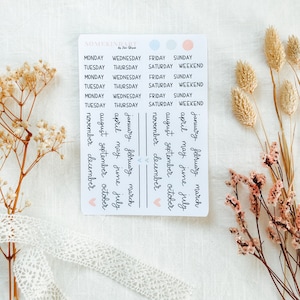 MONDAY WEDNESDAY FRIDAY SUNDAY
TUESDAY THURSDAY SATURDAY WEEKEND
MONDAY WEDNESDAY FRIDAY SUNDAY
TUESDAY THURSDAY SATURDAY WEEKEND
MONDAY WEDNESDAY FRIDAY SUNDAY
TUESDAY THURSDAY SATURDAY WEEKEND
january february march
april may june july
august september october
november december
january february march
april may june july
august september october
november december